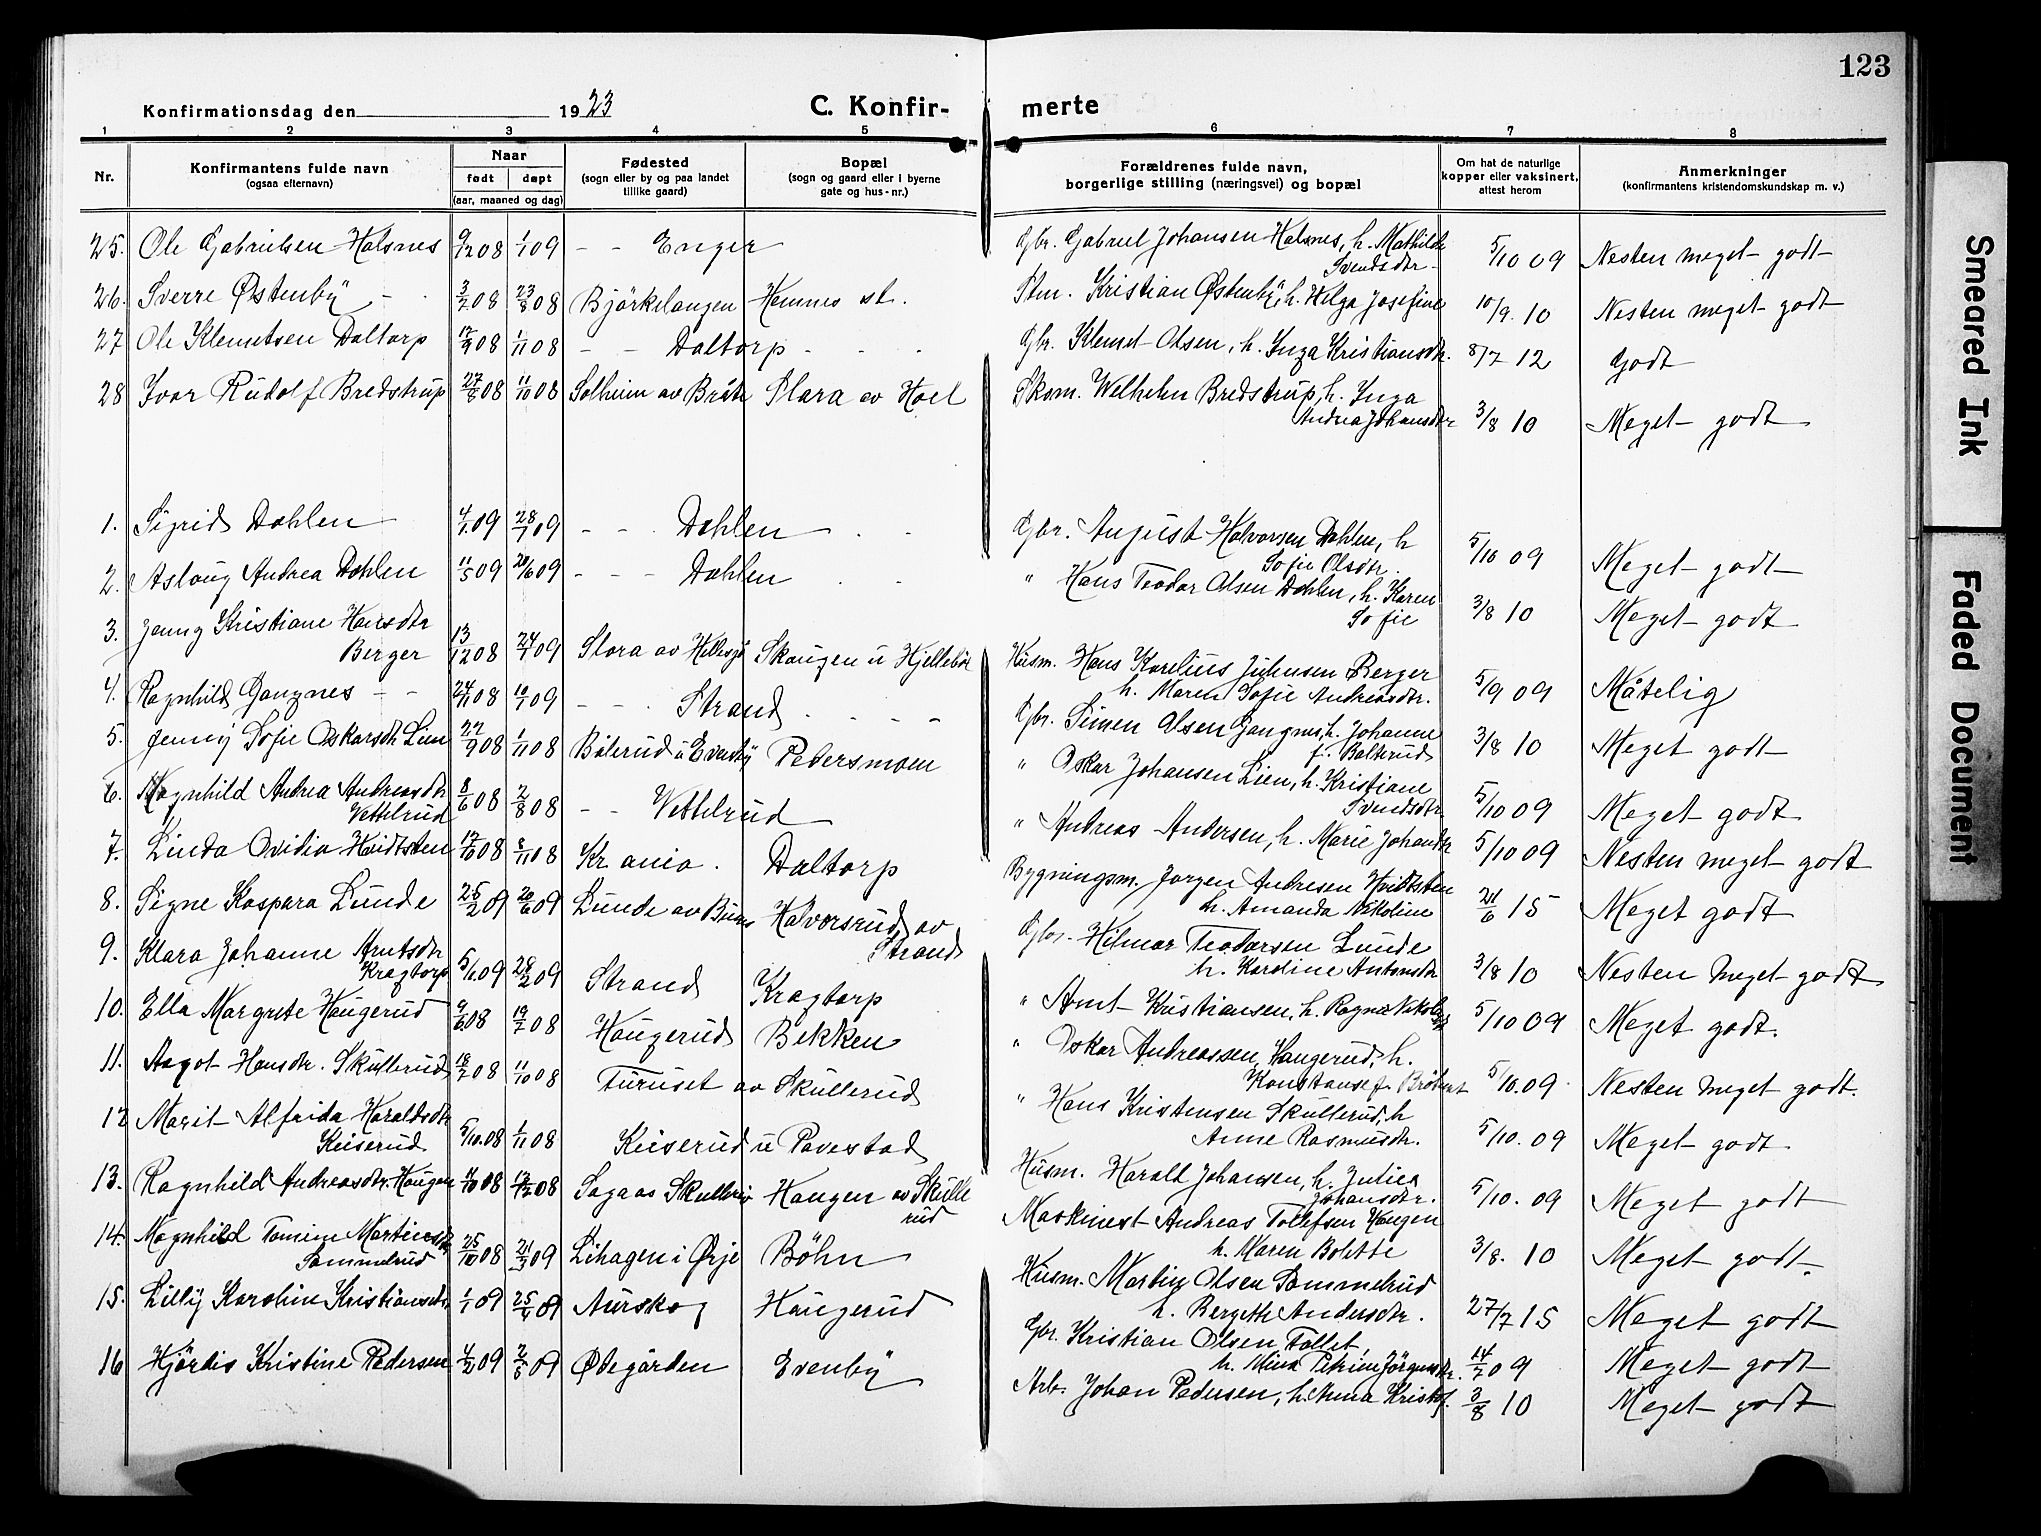 123
Konfirmationsdag den 1923
C. Konfir-
merte
1 2 3 4 5 6 7 8
Nr.
Konfirmantens fulde navn
(ogsaa efternavn)
Naar
født døpt
(aar, maaned og dag)
Fødested
(sogn eller by og paa landet
tillike gaard)
Bopæl
(sogn og gaard eller i byerne
gate og hus-nr.)
Forældrenes fulde navn,
borgerlige stilling (næringsvei) og bopæl
Om hat de naturlige
kopper eller vaksinert,
attest herom
Anmerkninger
(konfirmantens kristendomskundskap m. v.)
25. Ole Gabrielsen Halsnes 9/12 08 1/1 09 - - Enger
Gbr. Gabriel Johansen Halsnes, h. Mathilde
Svendsdtr. 5/10 09 Nesten meget godt
26. Sverre Østenbÿ 3/2 08 23/8 08 Björkelangen Hemnes st.
Stm. Kristian Østenbÿ, h. Helga Josefine 10/9. 10 Nesten meget godt
27 Ole Klemetsen Daltorp 12/9 08 1/11 08 - - Daltorp
Gbr. Klemet Olsen, h. Inga Kristiansdtr. 8/7 12 Godt
28 Ivar Rudolf Bredstrup 27/8 08 11/10 08 Solheim av Bråte Slara av Hoel
Skom. Welhelm Bredstrup, h. Inga
Andrea Johansdtr 3/8 10 Meget godt
1. Sigrid Dahlen 4/1 09 28/1 09 - - Dahlen
Gbr. August Halvorsen Dahlen, h
Sofie Olsdtr. 5/10 09 Meget godt
2. Aslaug Andrea Dahlen 11/5 09 20/6 09 - - - Dahlen
" Hans Teodor Olsen Dahlen, h. Karen
Sofie 3/8 10 Meget godt
3. Jenny Kristiane Hansdtr
Berger 13/12 08 24/1 09 Slora av Hellesjö Skaugen u Hjellebøl
Husm. Hans Karelius Juhnsen Berger
h. Maren Sofie Andreasdtr. 5/9 09 Måtelig
4. Ragnhild Gangnes 24/11 08 10/1 09 - - Strand
Gbr. Simen Olsen Gangnes, h. Johanne
f. Balterud 3/8 10 Meget godt
5. Jenny Sofie Oskarsdtr Lien 22/9 08 1/11 08 Bølerud u Evenbÿ Pedersmoen
" Oskar Johansen Lien, h. Kristiane
Svendsdtr 5/10 09 Meget godt
6. Magnhild Andrea Andreasdtr
Vettelrud 8/6 08 2/8 08 - - Vettelrud
" Andreas Andersen, h. Marie Johansdtr 5/10 09 Nesten meget godt
7. Linda Ovidia Hvidtsten 12/10 08 8/11 08 Kr ania. Daltorp
Bygningsm. Jørgen Andresen Hvidtsten
h. Amanda Nikoline 21/6 15 Meget godt
8. Signe Kaspara Lunde 25/2 09 20/6 09 Lunde av Buns Halvorsrud av
Strand
Gbr. Hilmar Teodorsen Lunde
h. Karoline Antonsdtr 3/8 10 Nesten Meget godt
9. Klara Johanne Arntsdtr
Kragtorp 5/1 09 28/2 09 Strand Kragtorp
" Arnt Kristiansen, h. Ragna 5/10 09 Meget godt.
10. Ella Margrete Haugerud 9/6 08 19/7 08 Haugerud Bekken
" Oskar Andreassen Haugerud, h.
Konstanse f. 5/10. 09 Nesten Meget godt.
11. Aagot Hansdtr. Skullerud 18/7 08 11/10 08 Turuset av Skullerud
" Hans Kristensen Skullerud, h
Anne Rasmusdtr. 5/10. 09 Meget godt
12 Marit Alfrida Haraldsdtr
Kiiserud 5/10. 08 1/11 08 Kiiserud u Pavestad
Husm. Harald Johansen, h. Julies
Johansdtr. 5/10. 09 Meget godt
13. Ragnhild Andreasdtr. Haugen 4/10 08 13/12 08 Sagaas Skullerud Haugen av Skulle
rud
Maskinest Andreas Tollefsen Haugen
h. Maren Bolette 3/8. 10 Meget godt.
14. Magnhild Tomine Martinsdtr
Sammelrud 25/10 08 21/3 09 Lihagen i Ørje Böhn
Husm. Martin Olsen Sommelrud
h. Bergette Andersdtr. 27/7 15 Meget godt
15. Lilly Karoline Kristiansdtr. 1/1 09 25/4 09 Aurskog Haugerud
Gbr. Kristian Olsen Tollet
h. Mina Petrine Jörgensdtr. 14/7 09 Meget godt
16 Hjördis Kristine Pedersen 4/2 09 2/5 09 Ødegården Evenbÿ
Arb. Johan Pedersen, h. Anna Kristof. 3/8 10 Meget godt
Smeared Ink
Faded Document